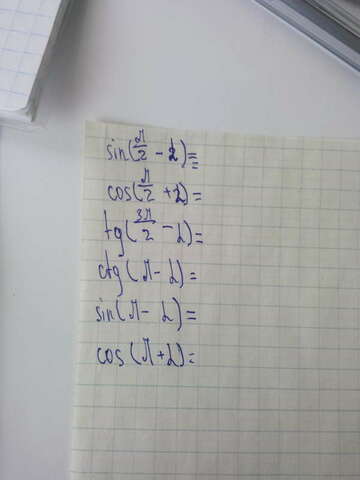 sin(π/2 - α)=
cos(π/2 + α)=
tg(3π/2 - α)=
ctg(π - α)=
sin(π - α)=
cos(π + α)=